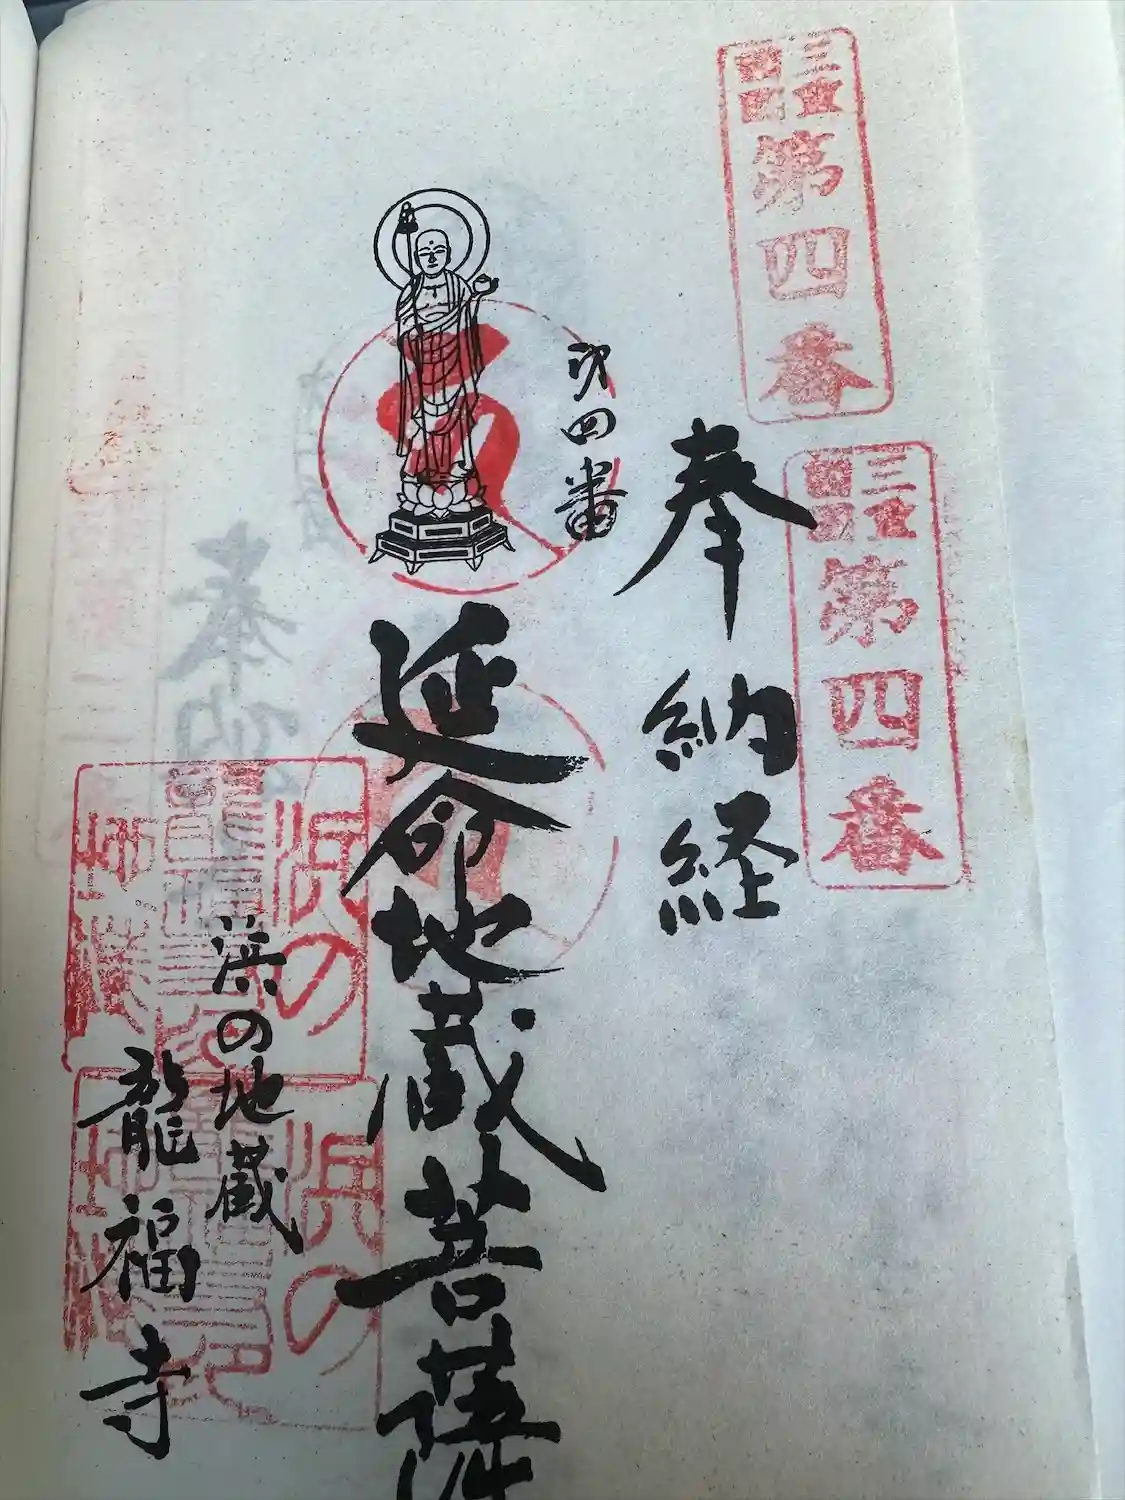 三重
四国
第四番
三重
四国
第四番
奉納経
第四番
延命地蔵菩薩
浜の地蔵
龍福寺
浜の